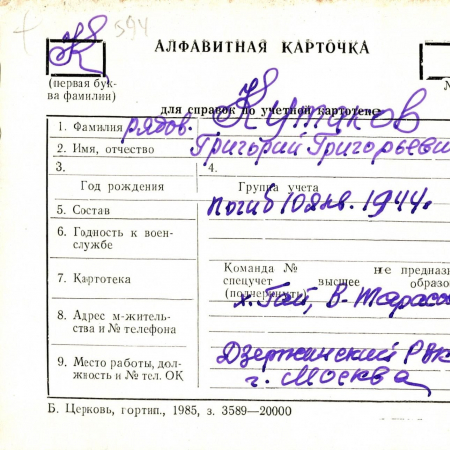 К 594
АЛФАВИТНАЯ КАРТОЧКА
(первая бук-
ва фамилии)
для справок по учетной картотеке
1. Фамилия рядов.
2. Имя, отчество Григорий Григорьеви
3.
4.
Год рождения
Группа учета
5. Состав погиб 10 янв. 1944г.
6. Годность к воен-
службе
7. Картотека
Команда № не предназ
спецучет высшее образо
(подчеркнуть)
х. Гай, В-Тарасо
8. Адрес м-житель-
ства и № телефона
Дзержинский РВК
9. Место работы, дол-
жность и № тел. ОК
г. Москва
Б. Церковь, гортип., 1985, з. 3589—20000